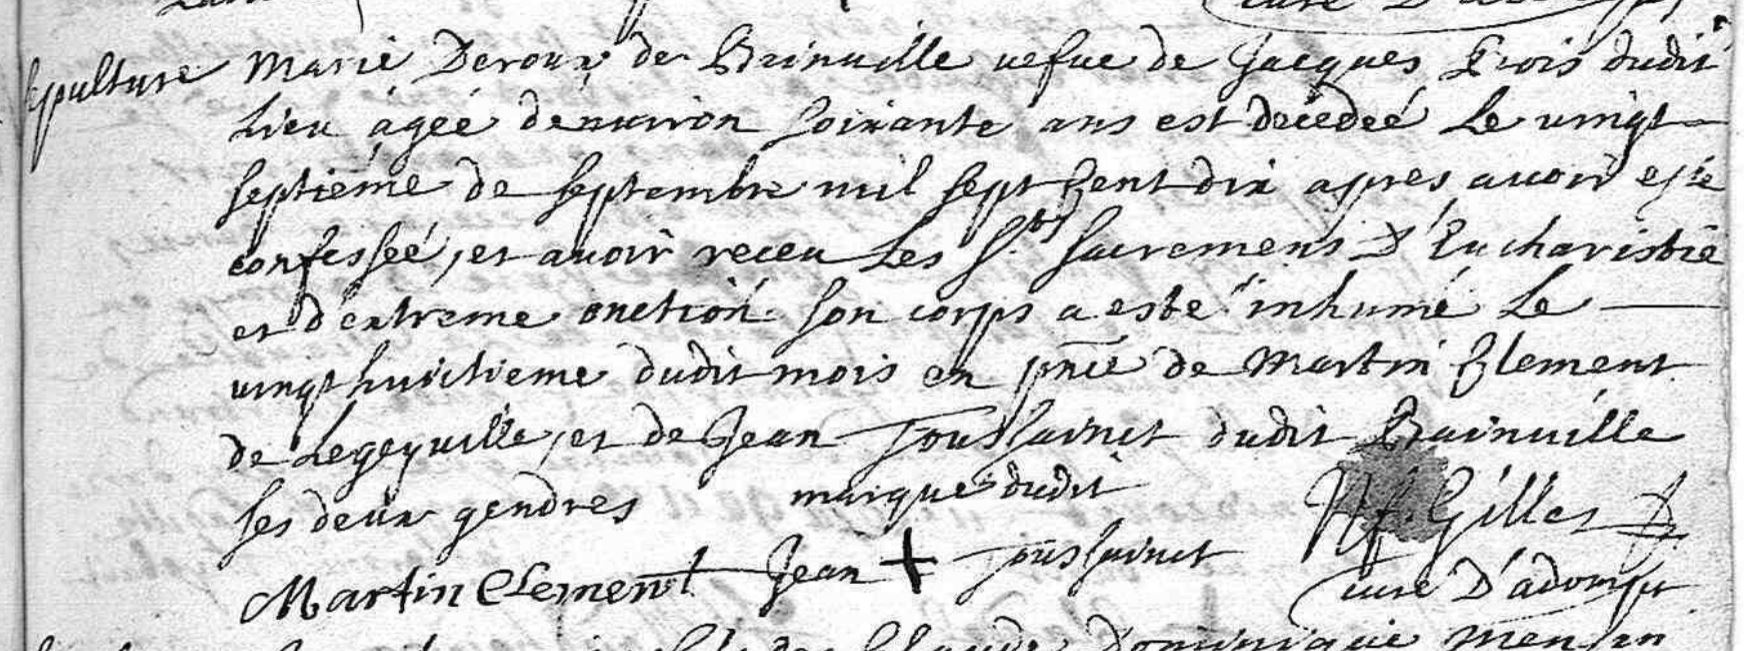 Sepulture Marie Deroux de Bainuille uefue de Jacques Frois dudit
Lieu ágéé denuiron soixante ans est decedeé Le uingt
septiéme de septembre mil sept cent dix apres auoir esté
confesséé, et auoir receu Les Sts sacremens D'Eucharistie
et d'extreme onction. son corps a esté inhumé Le
uingt huictieme dudit mois en pnce de Martin Clement
de Legeyuille, et de Jean Toussainct dudit Bainuille
ses deux gendres marque dudit
Martin Clement Jean + Toussainct Gilles
cure D'adompt
Claude Dominique